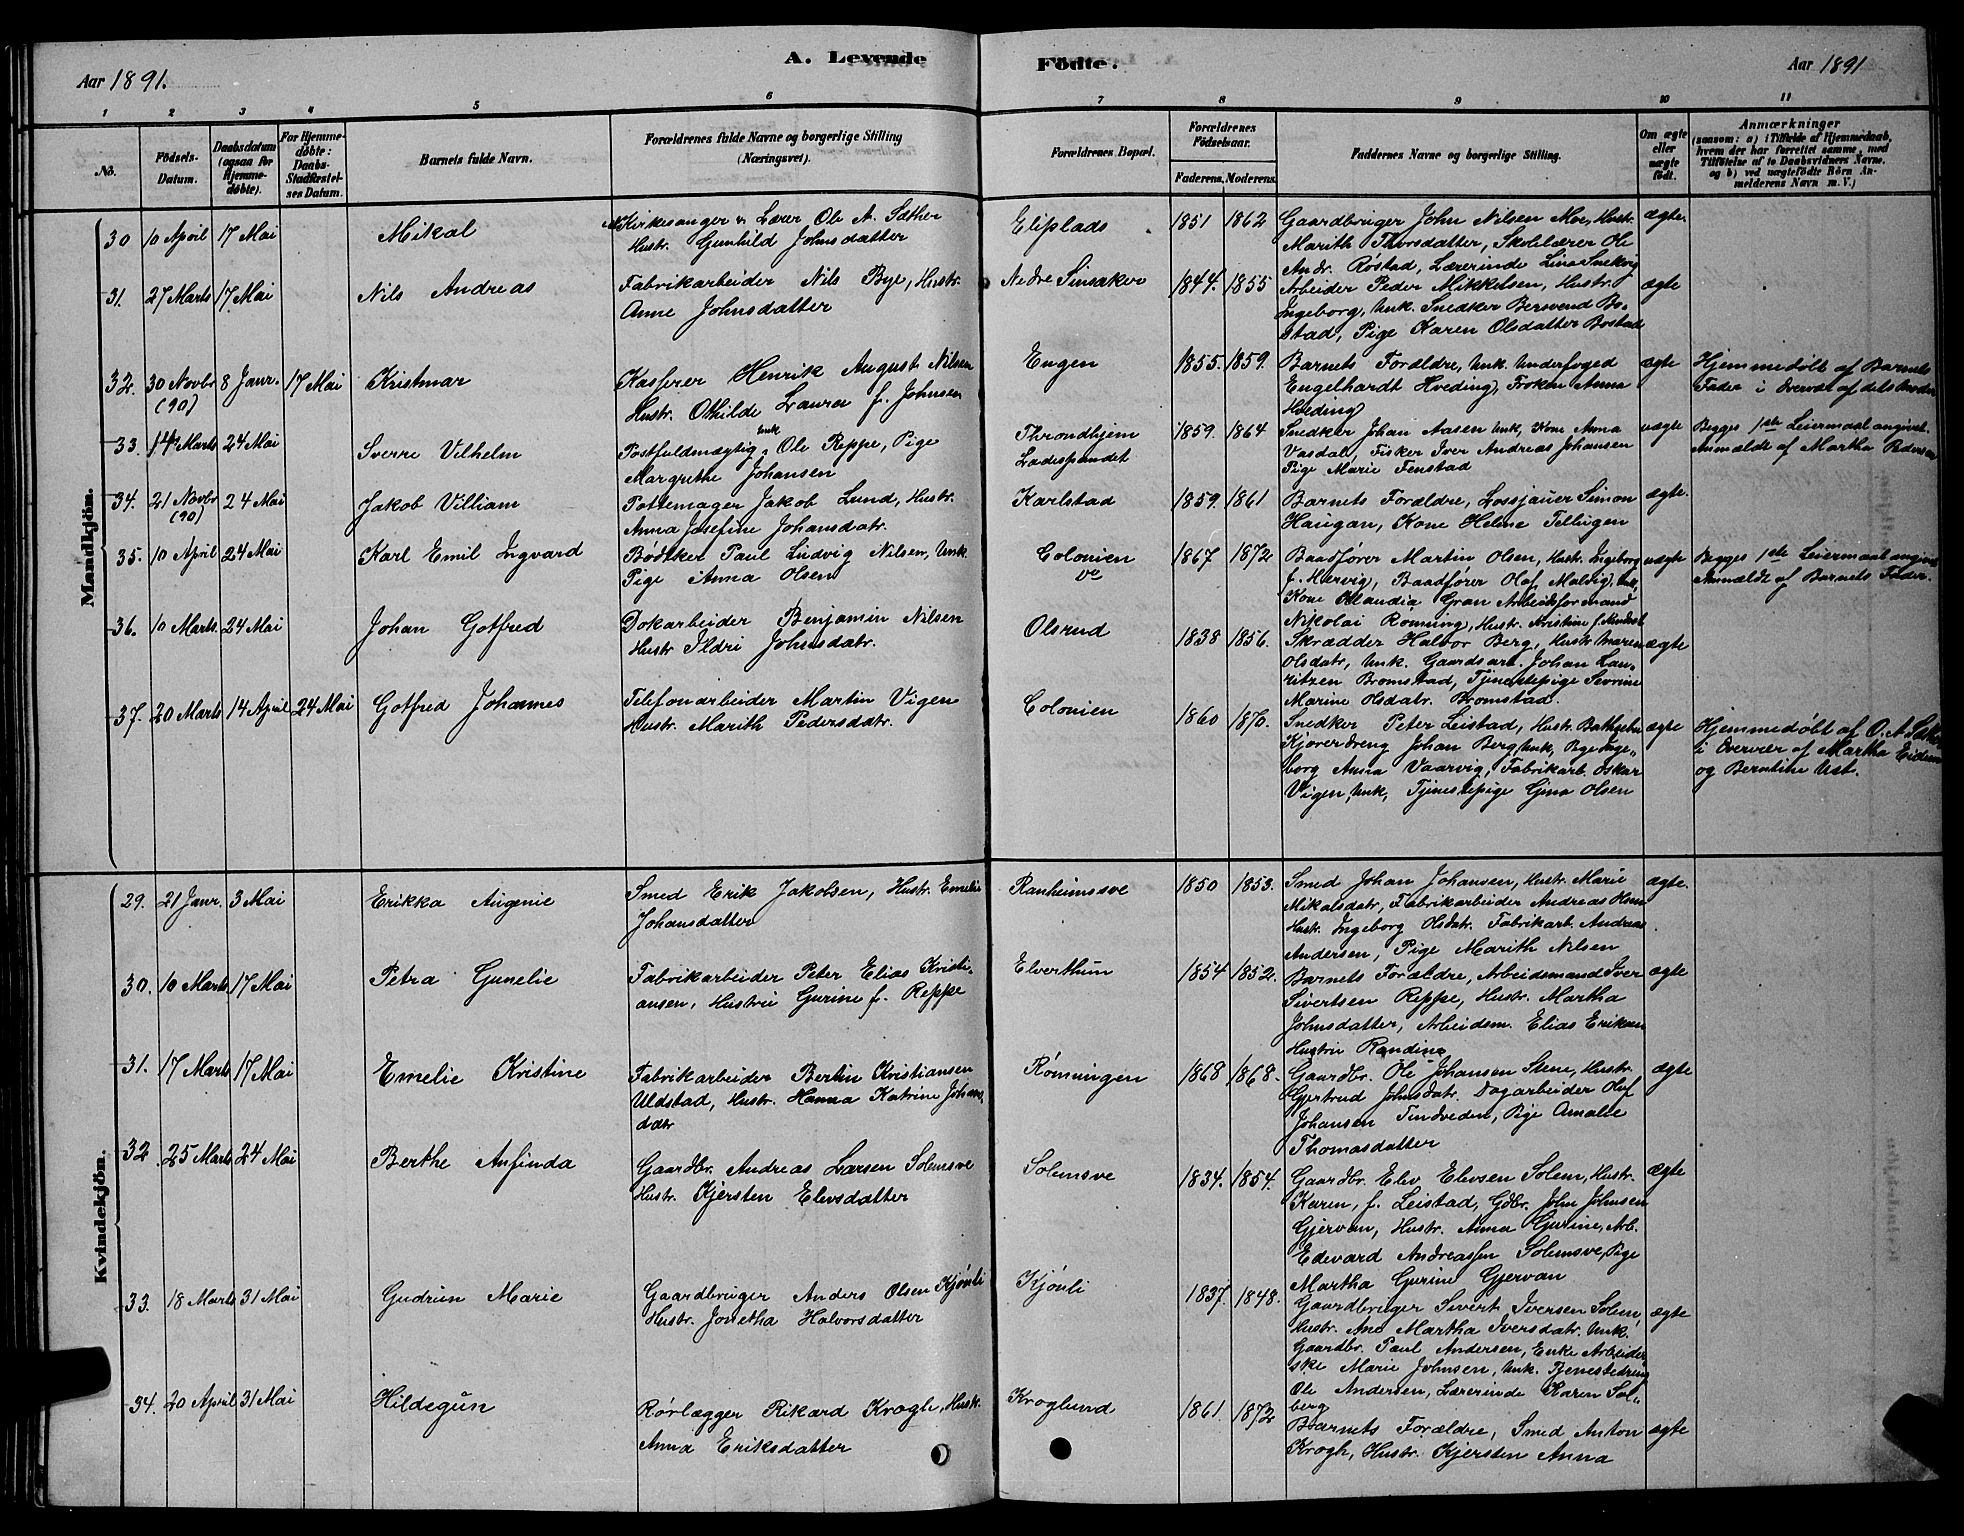 Aar 1891.
A. Levende
Födte.
Aar 1891
1 2 3 4 5 6 7 8 9 10 11
No.
Födsels-
Datum.
Daabsdatum
(ogsaa for
Hjemme-
døbte).
For Hjemme-
døbte:
Daabs-
Stadfæstel-
ses Datum.
Barnets fulde Navn.
Forældrenes fulde Navne og borgerlige Stilling
(Næringsvei).
Forældrenes Bopæl.
Forældrenes
Födselsaar.
Faderens. Moderens.
Faddernes Navne og borgerlige Stilling.
Om ægte
eller
uægte
født.
Anmærkninger
(saasom: a) i Tilfælde af Hjemmedaab,
hvem der har forrettet samme, med
Tilföielse af to Daabsvidners Navne,
og b) ved uægtefødte Börn An-
melderens Navn m. V.)
Mandkjön.
30 10 April 17 Mai Mikal
Kirkesanger & Lærer Ole A. Sæther
Hustr. Gunhild Johnsdatter
Eliplads 1851 1862
Gaardbruger John Nilsen Moe, Hustr.
Marith Thorsdatter, Skolelærer Ole
Andr. Røstad, Lærerinde Lina Snekvig
ægte.
31. 27 Marts 17 Mai Nils Andreas
Fabrikarbeider Nils Bye, Hustr.
Anne Johnsdatter
Nedre Sinsaker 1844. 1855
Arbeider Peder Mikkelsen, Hustr.
Ingeborg, Unk. Snedker Bernvend Bo-
stad, Pige Karen Olsdatter Bostad
ægte
32. 30 Novbr (90) 8 Janr. 17 Mai Kristmar
Kasserer Henrik August Nilsen
Hustr. Othilde Laura f. Johnsen
Engen 1855. 1859.
Barnets Forældre, Unk. Underfoged
Engelhardt Hveding, Frøken Anna
Hveding
ægte
Hjemmedøbt af Barnets
Fader i Overvær af dets Moder
33. 14 Marts 24 Mai Sverre Vilhelm
Postfuldmægtig Unk Ole Reppe, Pige
Margrethe Johansen
Throndhjem
Ladespundet
1859. 1864
Snedker Johan Aasen Unk, Kone Anna
Vasdal, Fisker Iver Andreas Johansen
Pige Marie Fenstad
uægte
Begges 1ste Leiermaal angivet
Anmældt af Martha Pedersen
34. 21 Novbr (90) 24 Mai Jakob Villiam
Pottemager Jakob Lund, Hustr.
Anna Josefine Johansdatr.
Karlstad 1859. 1861
Barnets Forældre, Lossjauer Simon
Haugan, Kone Helene Tellugen
ægte.
35. 10 April 24 Mai Karl Emil Ingvard
Bødtker Paul Ludvig Nilsen, Unk
Pige Anna Olsen
Colonien
ve
1867 1872
Baadfører Martin Olsen, Hustr. Ingeborg
f. Hervig, Baadfører Olaf Malvig, Unk,
Kone Olandia Gran Arbeidsformand
Nikolai Rønning, Hustr. Kristine f.
uægte
Begges 1ste Leiermaal angivet
Anmældt af Barnets Fader.
36. 10 Marts 24 Mai Johan Gotfred
Dokarbeider Benjamin Nilsen
Hustr Ildri Johnsdatr.
Olsrud 1838 1856.
Skrædder Halvor Berg, Hustr. Maren
Olsdatr, Unk. Gaardsarb. Johan Lau-
ritzen Bromstad, Tjenestepige Sevrine
Marine Olsdatr. Bromstad.
ægte
37. 20 Marts 14 April 24 Mai Gotfred Johannes
Telefonarbeider Martin Vigen
Hustr. Marith Pedersdatr.
Colonien 1860 1870.
Snedker Peter Leistad, Hustr. Bathseba
Kjøreredreng Johan Berg, Unk, Pige Inge-
borg Anna Vaarvig, Fabrikarb. Oskar
Vigen, Unk, Tjenestepige Gina Olsen
ægte
Hjemmedøbt af O. A. Sæther
i Overvær af Martha Eidem
og Berntine Ust.
Kvindekjön.
29. 21 Janr. 3 Mai Erikka Augenie
Smed Erik Jakobsen, Hustr. Emelie
Johansdatter
Ranheimsve 1850 1853.
Smed Johan Johansen, Hustr. Marie
Mikalsdatr, Fabrikarbeider Andreas
Hustr. Ingeborg Olsdatr. Fabrikarb. Andreas
Andersen, Pige Marith Nilsen
ægte.
30. 10 Marts 17 Mai Petra Gunelie
Fabrikarbeider Peter Elias Kristi-
ansen, Hustru Gurine f. Reppe
Elverthun 1854 1852.
Barnets Forældre, Arbeidsmand Iver
Sivertsen Reppe, Hustr. Martha
Johnsdatter, Arbeidsm. Elias Eriksen
Hustru Randine
ægte
31. 17 Marts 17 Mai Emelie Kristine
Fabrikarbeider Bertin Kristiansen
Uldstad, Hustr. Hanna Katrine Johans-
datr
Rønningen 1868 1868.
Gaardbr. Ole Johansen Stene, Hustr.
Gjertrud Johnsdatr. Dagarbeider Oluf
Johansen Tindveden, Pige Amalie
Thomasdatter
ægte
32 25 Marts 24 Mai Berthe Anfinda
Gaardbr. Andreas Larsen Solemsve
Hustr. Kjersten Elevsdatter
Solemsve 1834. 1854.
Gaardbr. Elev Elevsen Solem, Hustr.
Karen, f. Leistad, Gdbr. John Johnsen
Gjervan, Hustr. Anna Gurine, Arb.
Edevard Andreassen Solemsve, Pige
Martha Gurine Gjervan
ægte
33. 18 Marts 31 Mai Gudrun Marie
Gaardbruger Anders Olsen Kjønli
Hustr. Jonetha Halvorsdatter
Kjønli 1837. 1848.
Gaardbruger Sivert Iversen Solem,
Hustr. Ane Martha Iversdatr. Unk.
Gaardbr. Paul Andersen, Enke Arbeider-
ske Marie Johnsen, Unk. Tjenestedreng
Ole Andersen, Lærerinde Karen Sol-
berg
ægte
34. 20 April 31 Mai Hildegun
Rørlægger Rikard Krogh, Hustr.
Anna Eriksdatter
Kroglund 1861. 1872
Barnets Forældre, Smed Anton
Krogh, Hustr. Kjersten Anna
ægte